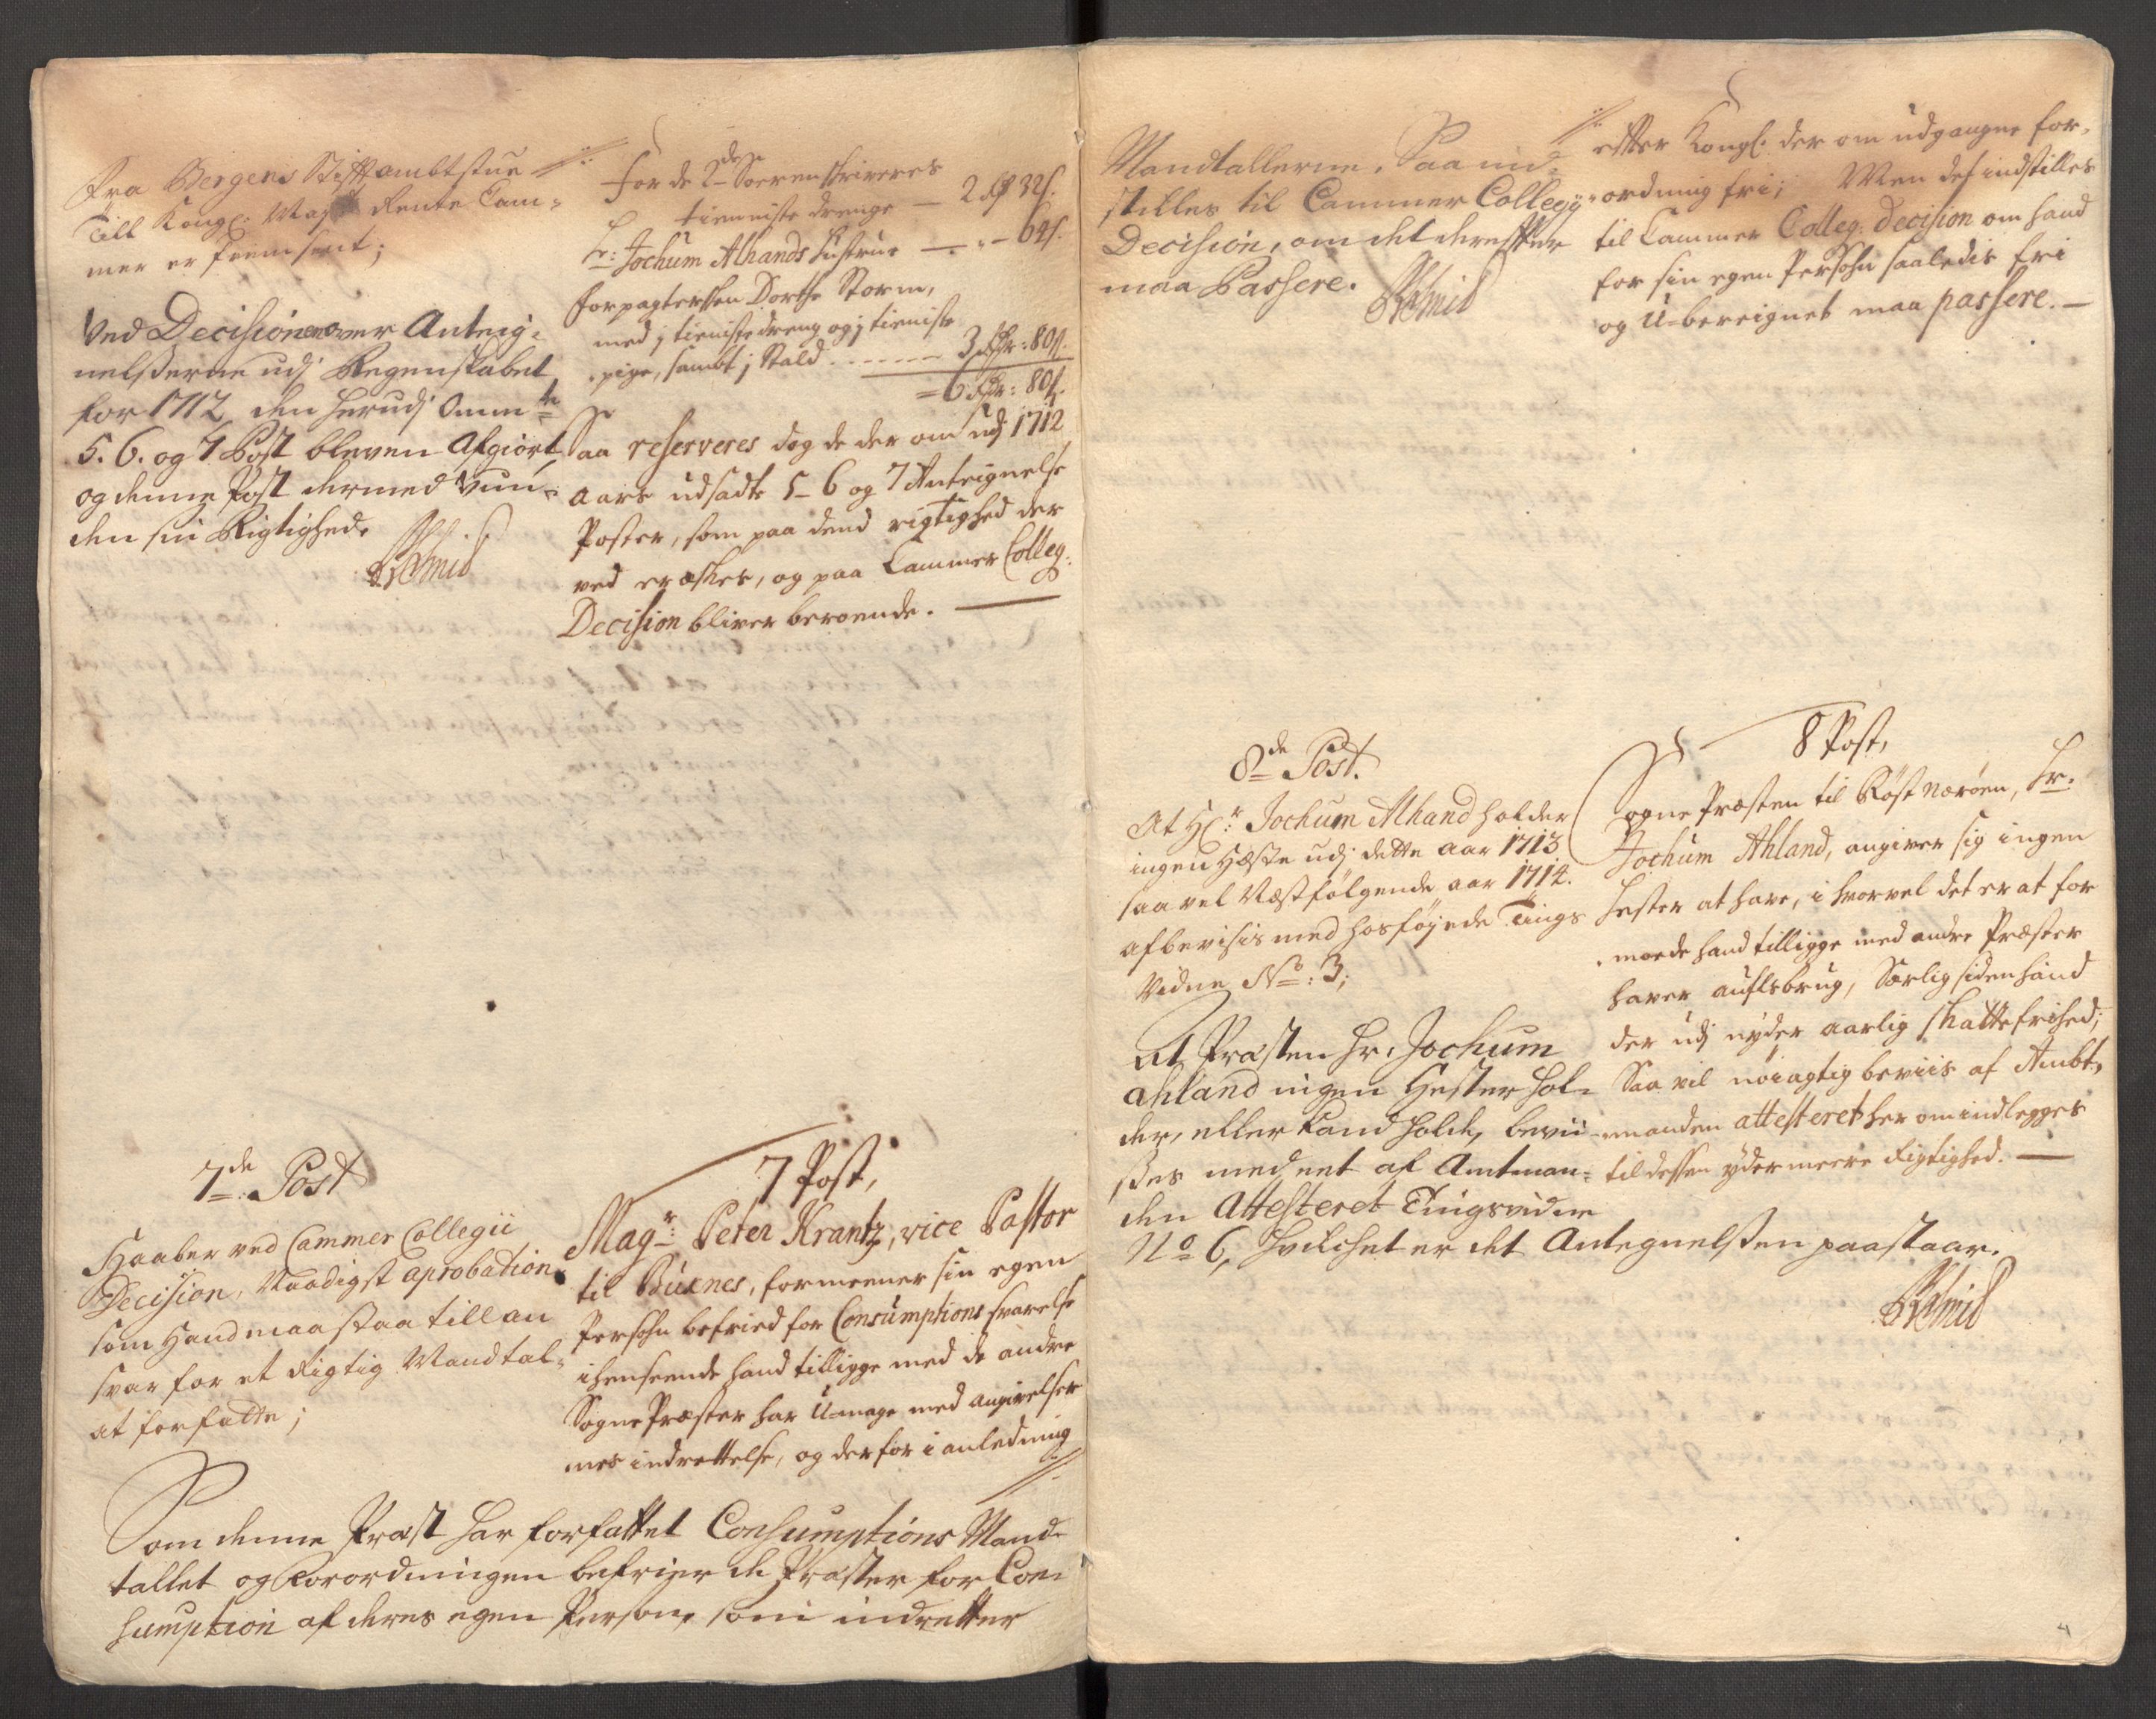 Fra Bergens Stiftambtstue
till Kongl: Mayst Rente Cam-
mer er fremsent;
Ved Decisionen over Anteig-
nelsserne udj Regenskabet
for 1712 den herudj Omm:te
5. 6. og 7 Post bleven Afgiort
og denne Post dermed Vun-
den sin Rigtighed.
For de 2de Sorenskriveres
tienniste drenge — 2 rdr 32 s.
Hr: Jochum Alhands hustrue — " — 64 s.
Forpagtersken Dorthe Storm,
med j tienistedreng og j tieniste
pige, sambt j Stald ...... 3 rdr: 80 s.
= 6 rdr: 80 s.
Saa reserveres dog de der om udj 1712
aars udsadte 5-6 og 7 Anteignelse
Poster, som paa dend rigtighed der
ved eræskes, og paa Cammer Colleg:
Decision bliver beroende. —
7de Post
Haaber ved Cammer Collegii
Decision, Naadigst aprobation
som Hand maa staa till an
svar for et Rigtig Mandtal
at forfatte;
7 Post,
Magr: Peter Krantz, vice Pastor
til Buxnes, formeener sin egen
Persohn befried for Consumptions svarelse
i henseende hand tilligge med de andre
Sogne Præster har U-mage med angivelser
nes indrettelse, og derfor i anledning
Som denne Præst har forfattet Consumptions Mand-
tallet og Forordningen befrier de Præster for Con-
sumption af deres egen Person, som indretter
Mandtallerne. Saa ind-
stilles til Cammer Collegij
Decision, om det derefter
maa Passere.
efter Kongl: der om udgangne for-
ordning fri; Men det indstilles
til Cammer Colleg: Decision om hand
for sin egen Persohn saaledis fri
og U-bereignet maa passere. —
8de Post.
At Hr: Jochum Alhand holder
ingen Hæste udj dette aar 1713
saavel Næstfølgende aar 1714.
afbevisis med hosføyede Tings
Vidne No: 3;
At Præsten Hr. Jochum
Ahland ingen Hester hol-
der, eller kand holde, bevii-
sses med eet af Amtman-
den Attesteret Tingsvidne
No 6, Hvilchet er det Antegnelssen paastaar.
8 Post,
Sogne Præsten til Røst nærøen, Hr:
Jochum Ahland, angiver sig ingen
hester at have, i hvorvel det er at for
moede hand tilligge med andre Præster
haver aufls brug, Særlig siden hand
der udj nyder aarlig skattefrihed;
Saa vil nøiagtig beviis af Ambt-
manden attesteret her om indlegges
til dessen ydermeere Rigtighed. —
4